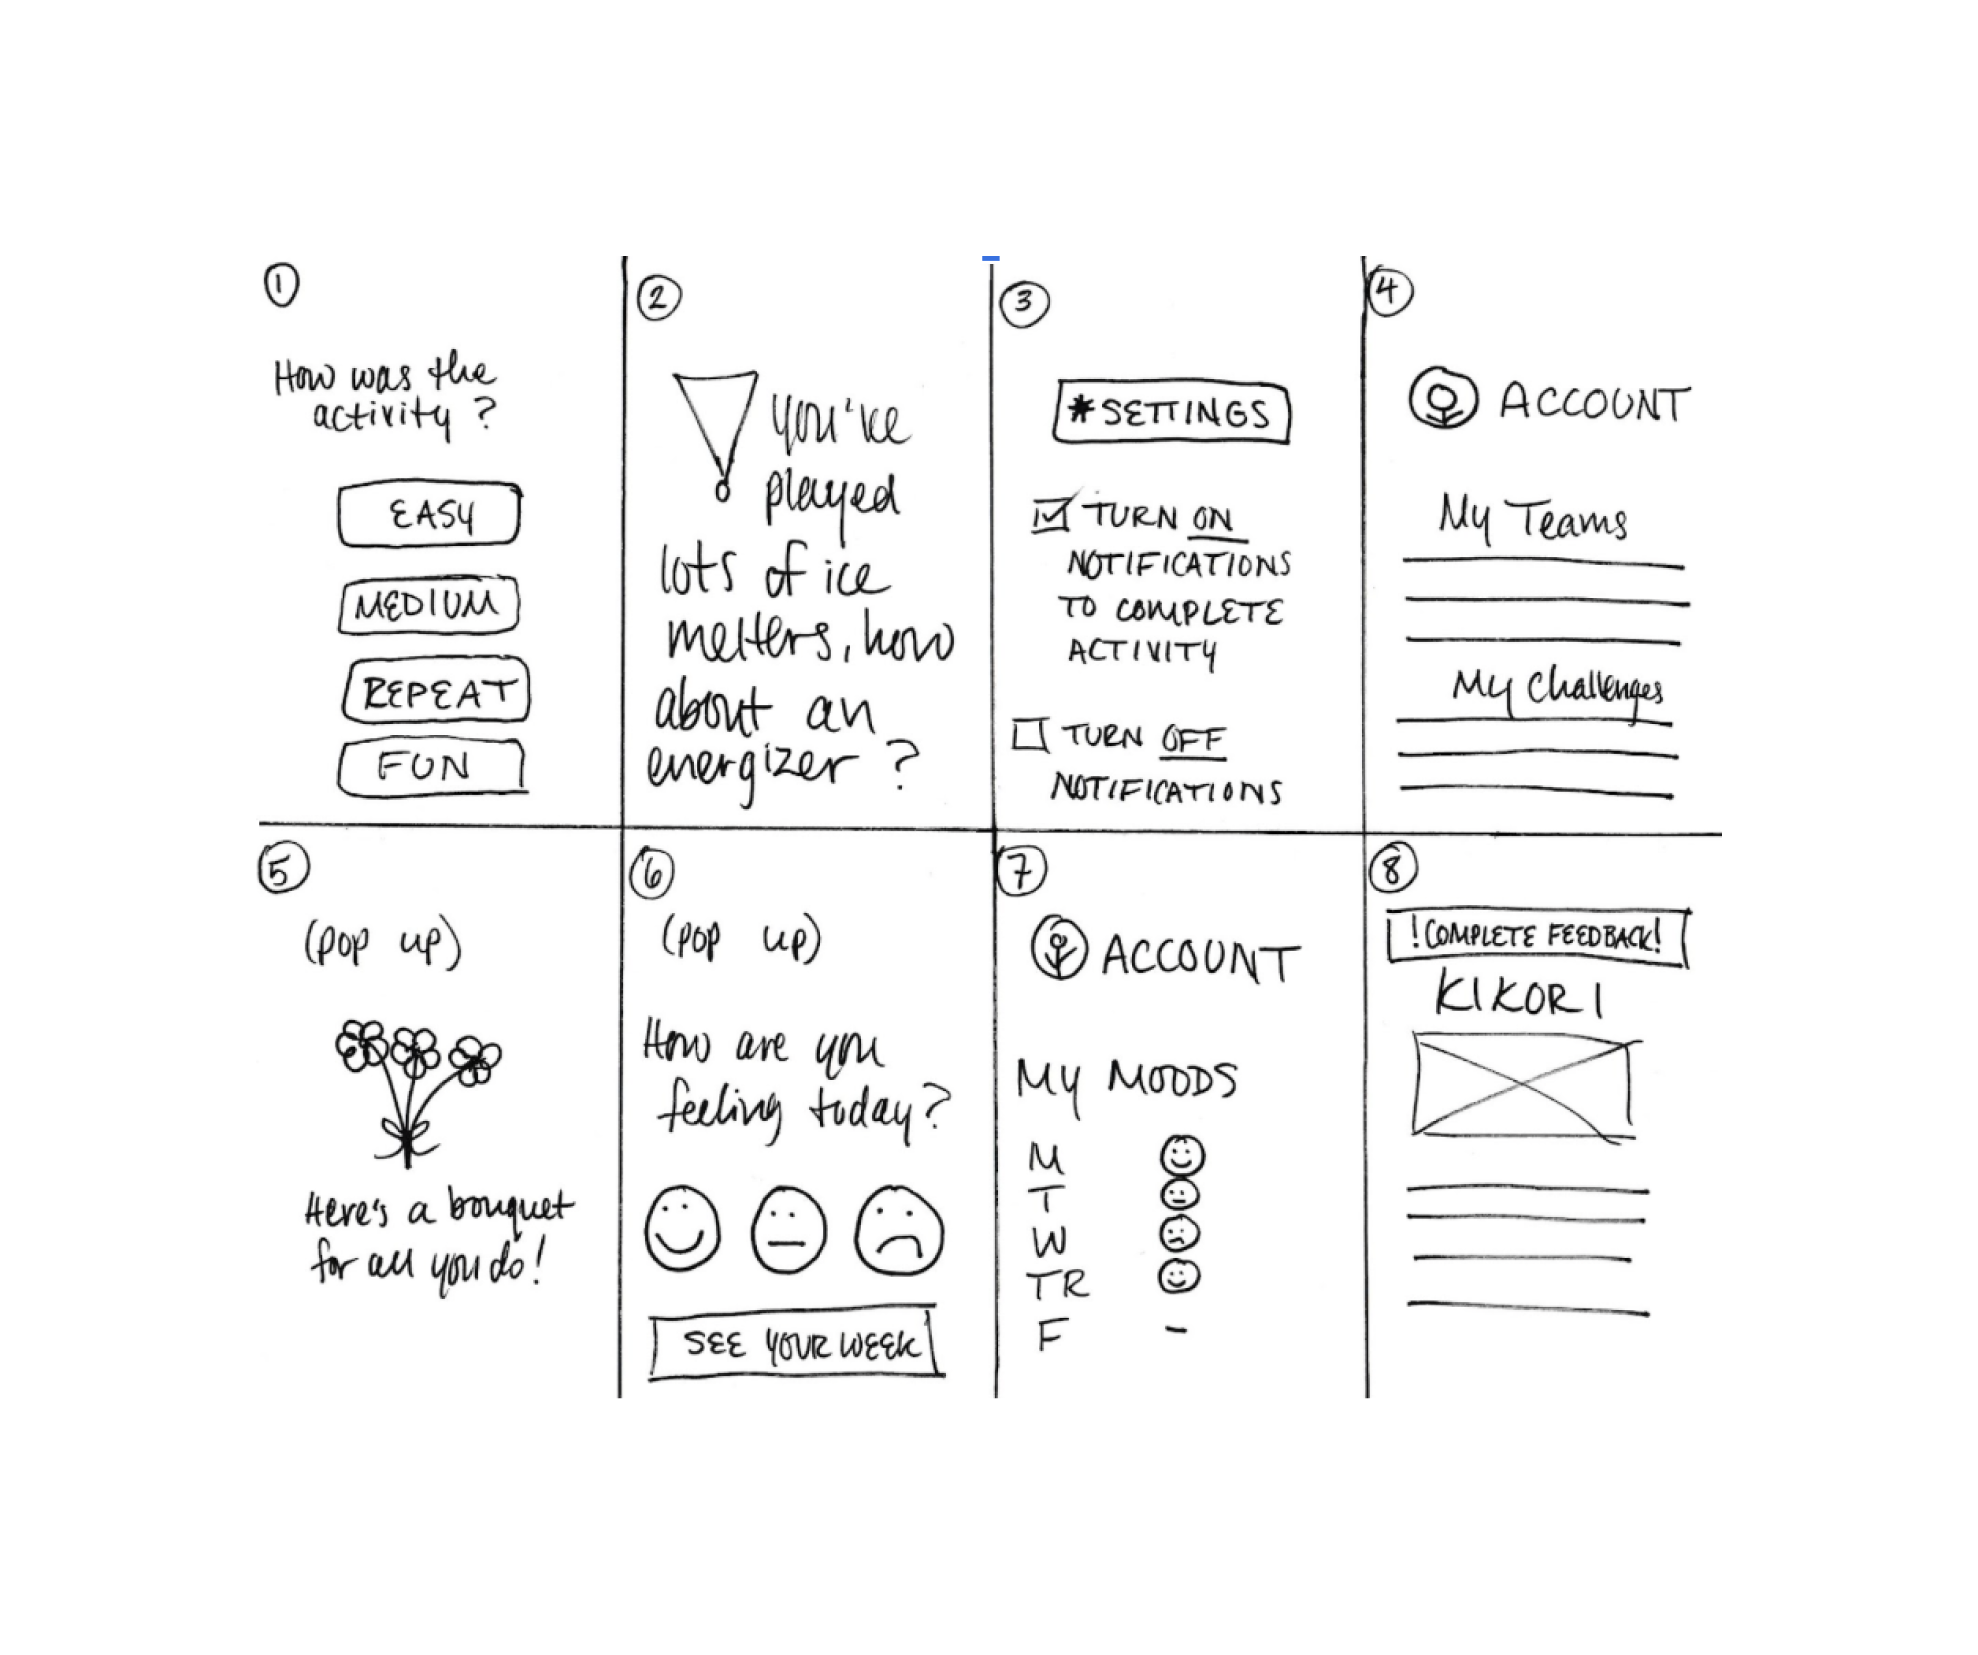 1
How was the
activity?
EASY
MEDIUM
REPEAT
FUN
2
you've
played
lots of ice
melters, how
about an
energizer?
3
*SETTINGS
TURN ON
NOTIFICATIONS
TO COMPLETE
ACTIVITY
TURN OFF
NOTIFICATIONS
4
ACCOUNT
My Teams
My Challenges
5
(pop up)
Here's a bouquet
for all you do!
6
(pop up)
How are you
feeling today?
SEE YOUR WEEK
7
ACCOUNT
MY MOODS
M
T
W
TR
F -
8
!COMPLETE FEEDBACK!
KIKORI